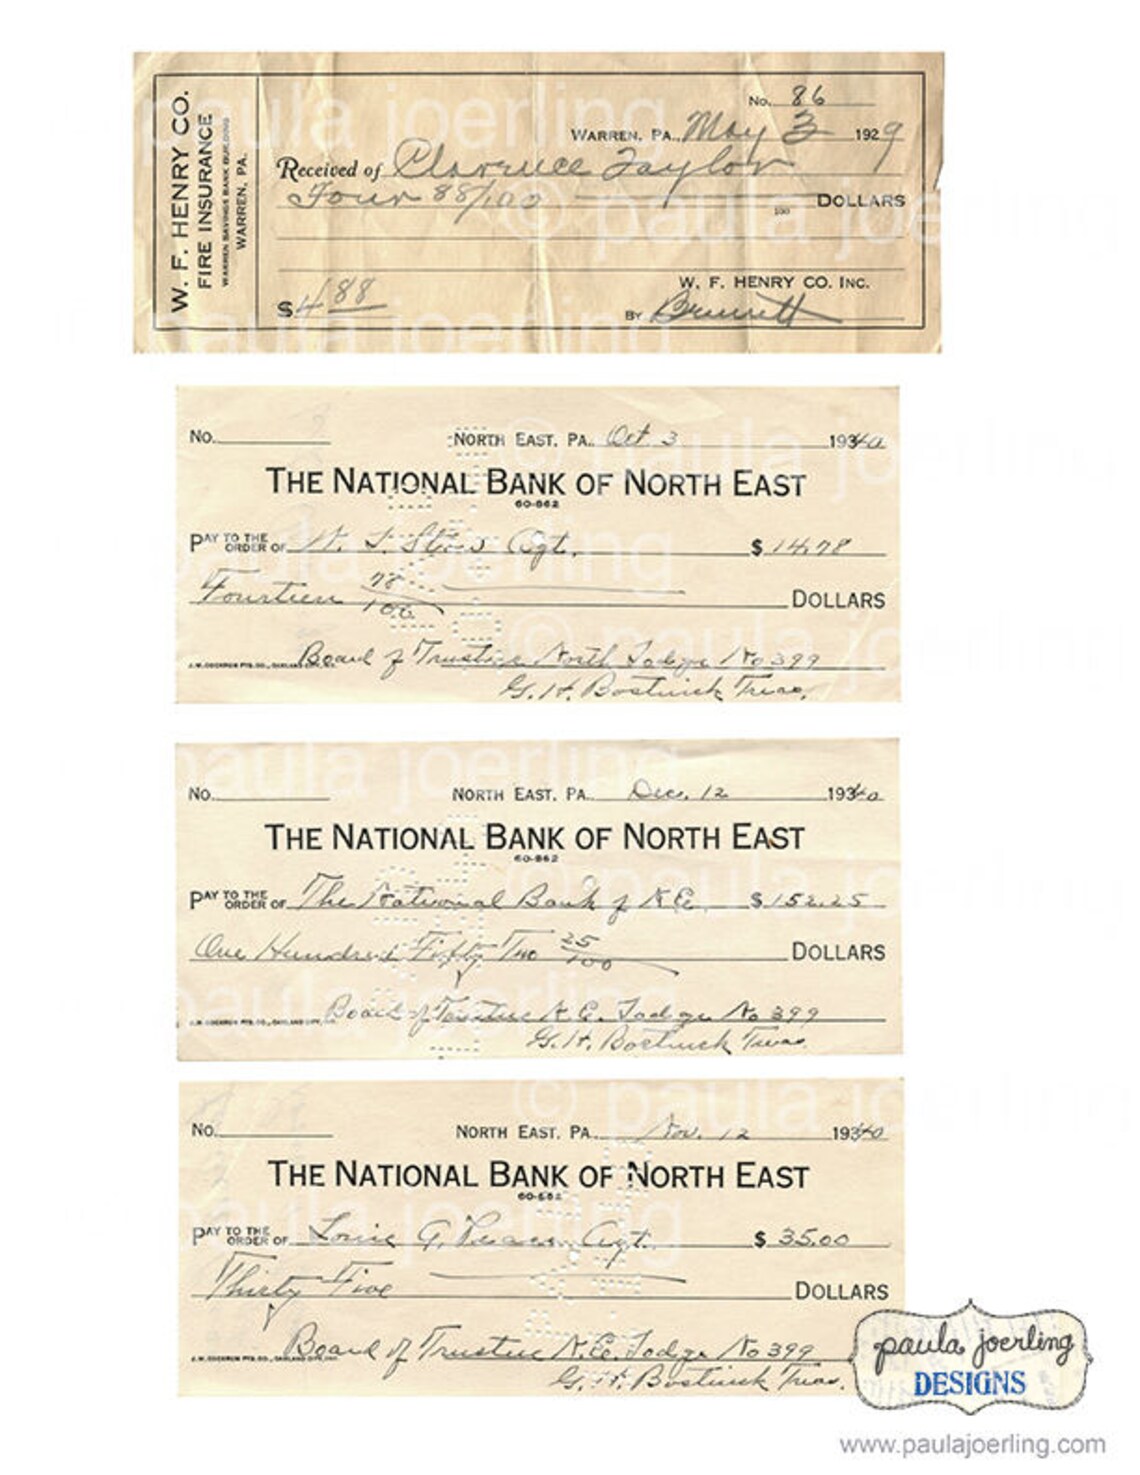 W. F. HENRY CO.
FIRE INSURANCE
WARREN SAVINGS BANK BUILDING
WARREN, PA.
No. 86
WARREN, PA., May 3 1929
Received of Clarence Taylor
Four 88/100 DOLLARS
100
W. F. HENRY CO. INC.
$4 88
BY
No.
NORTH EAST, PA. Oct. 3 1940
THE NATIONAL BANK OF NORTH EAST
60-862
PAY TO THE ORDER OF Agt. $ 14.78
Fourteen 78/100 DOLLARS
Board of Trustee North Lodge No 399
G. H. Bostwick Treas.
No.
NORTH EAST, PA. Dec. 12 1940
THE NATIONAL BANK OF NORTH EAST
60-862
PAY TO THE ORDER OF The National Bank of N.E. $ 152.25
One Hundred Fifty Two 25/100 DOLLARS
Board of Trustee N.E. Lodge No 399
G. H. Bostwick Treas.
No.
NORTH EAST, PA. Nov. 12 1940
THE NATIONAL BANK OF NORTH EAST
60-862
PAY TO THE ORDER OF Louie G. Agt. $ 35.00
Thirty Five DOLLARS
Board of Trustee N.E. Lodge No 399
G. H. Bostwick Treas.
© paula joerling
paula joerling
DESIGNS
www.paulajoerling.com